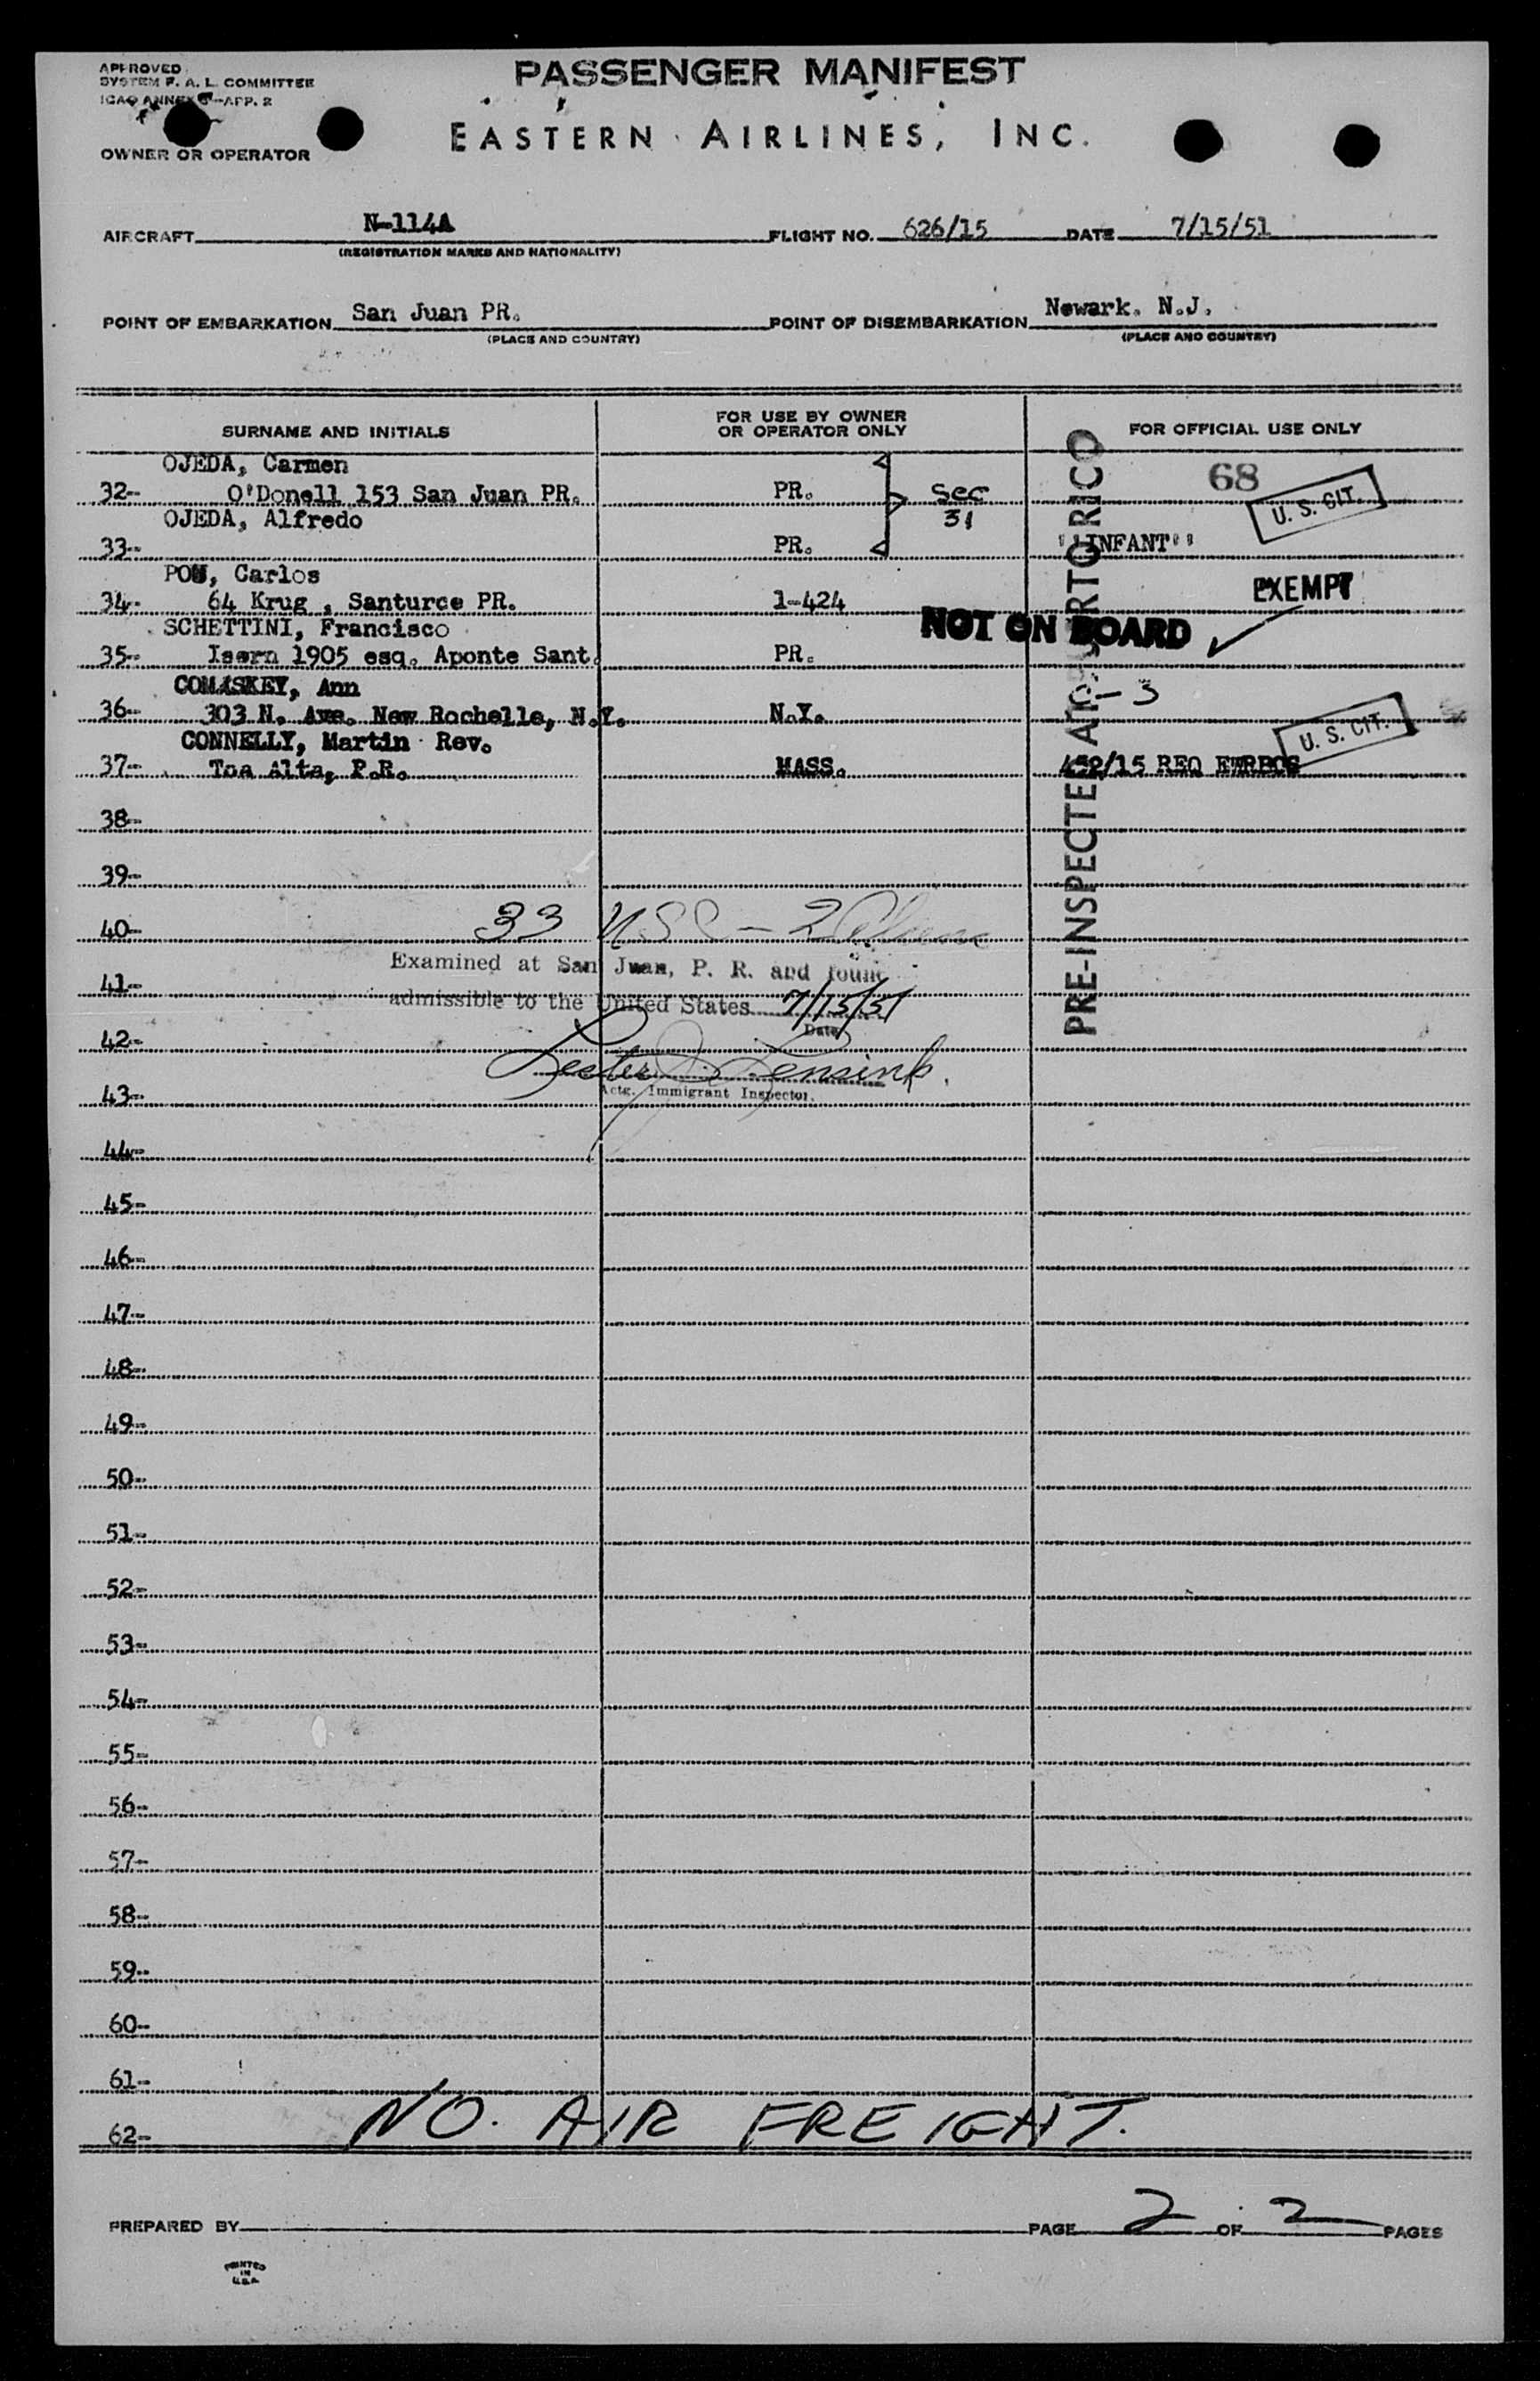 APPROVED
SYSTEM F. A. L. COMMITTEE
ICAO ANNEX 9—APP. 2
PASSENGER MANIFEST
EASTERN AIRLINES, INC.
OWNER OR OPERATOR
AIRCRAFT N-114A FLIGHT NO. 626/15 DATE 7/15/51
(REGISTRATION MARKS AND NATIONALITY)
POINT OF EMBARKATION San Juan PR. POINT OF DISEMBARKATION Newark. N.J.
(PLACE AND COUNTRY) (PLACE AND COUNTRY)
SURNAME AND INITIALS FOR USE BY OWNER OR OPERATOR ONLY FOR OFFICIAL USE ONLY
OJEDA, Carmen 68
32- O'Donell 153 San Juan PR. PR. Sec U. S. CIT.
OJEDA, Alfredo 31
33- PR. ''INFANT''
Carlos
34- 64 Krug , Santurce PR. 1-424 EXEMPT
SCHETTINI, Francisco NOT ON BOARD
35- Isern 1905 esq. Aponte Sant. PR.
COMASKEY, Ann 3
36- 303 N. Ave. New Rochelle, N.Y. N.Y.
CONNELLY, Martin Rev. U. S. CIT.
37- Toa Alta, P.R. MASS. /15 REQ
PRE-INSPECTED AT PUERTO RICO
38-
39-
40- 33 USC - 2
Examined at San Juan, P. R. and found
41-
admissible to the United States 7/15/51
Date
42-
Lester J Lensink
Actg. Immigrant Inspector.
43-
44-
45-
46-
47-
48-
49-
50-
51-
52-
53-
54-
55-
56-
57-
58-
59-
60-
61-
62- NO. AIR FREIGHT.
PREPARED BY PAGE 2 OF 2 PAGES
PRINTED
IN
U.S.A.